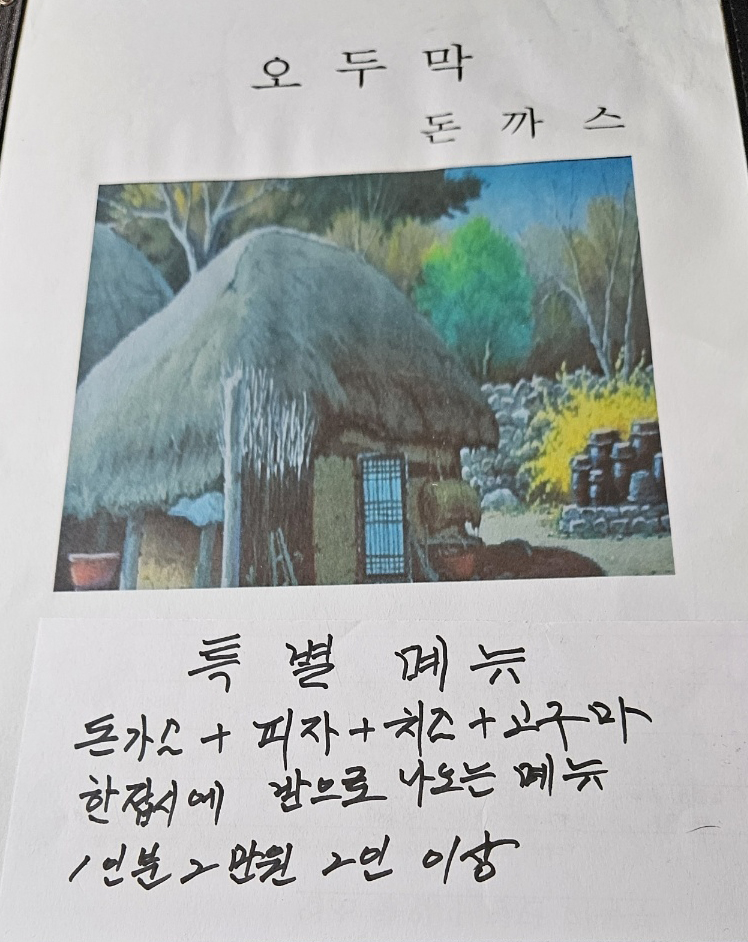 오두막
돈까스
특별메뉴
돈가스 + 피자 + 치즈 + 고구마
한접시에 반으로 나오는 메뉴
1인분 2만원 2인 이상